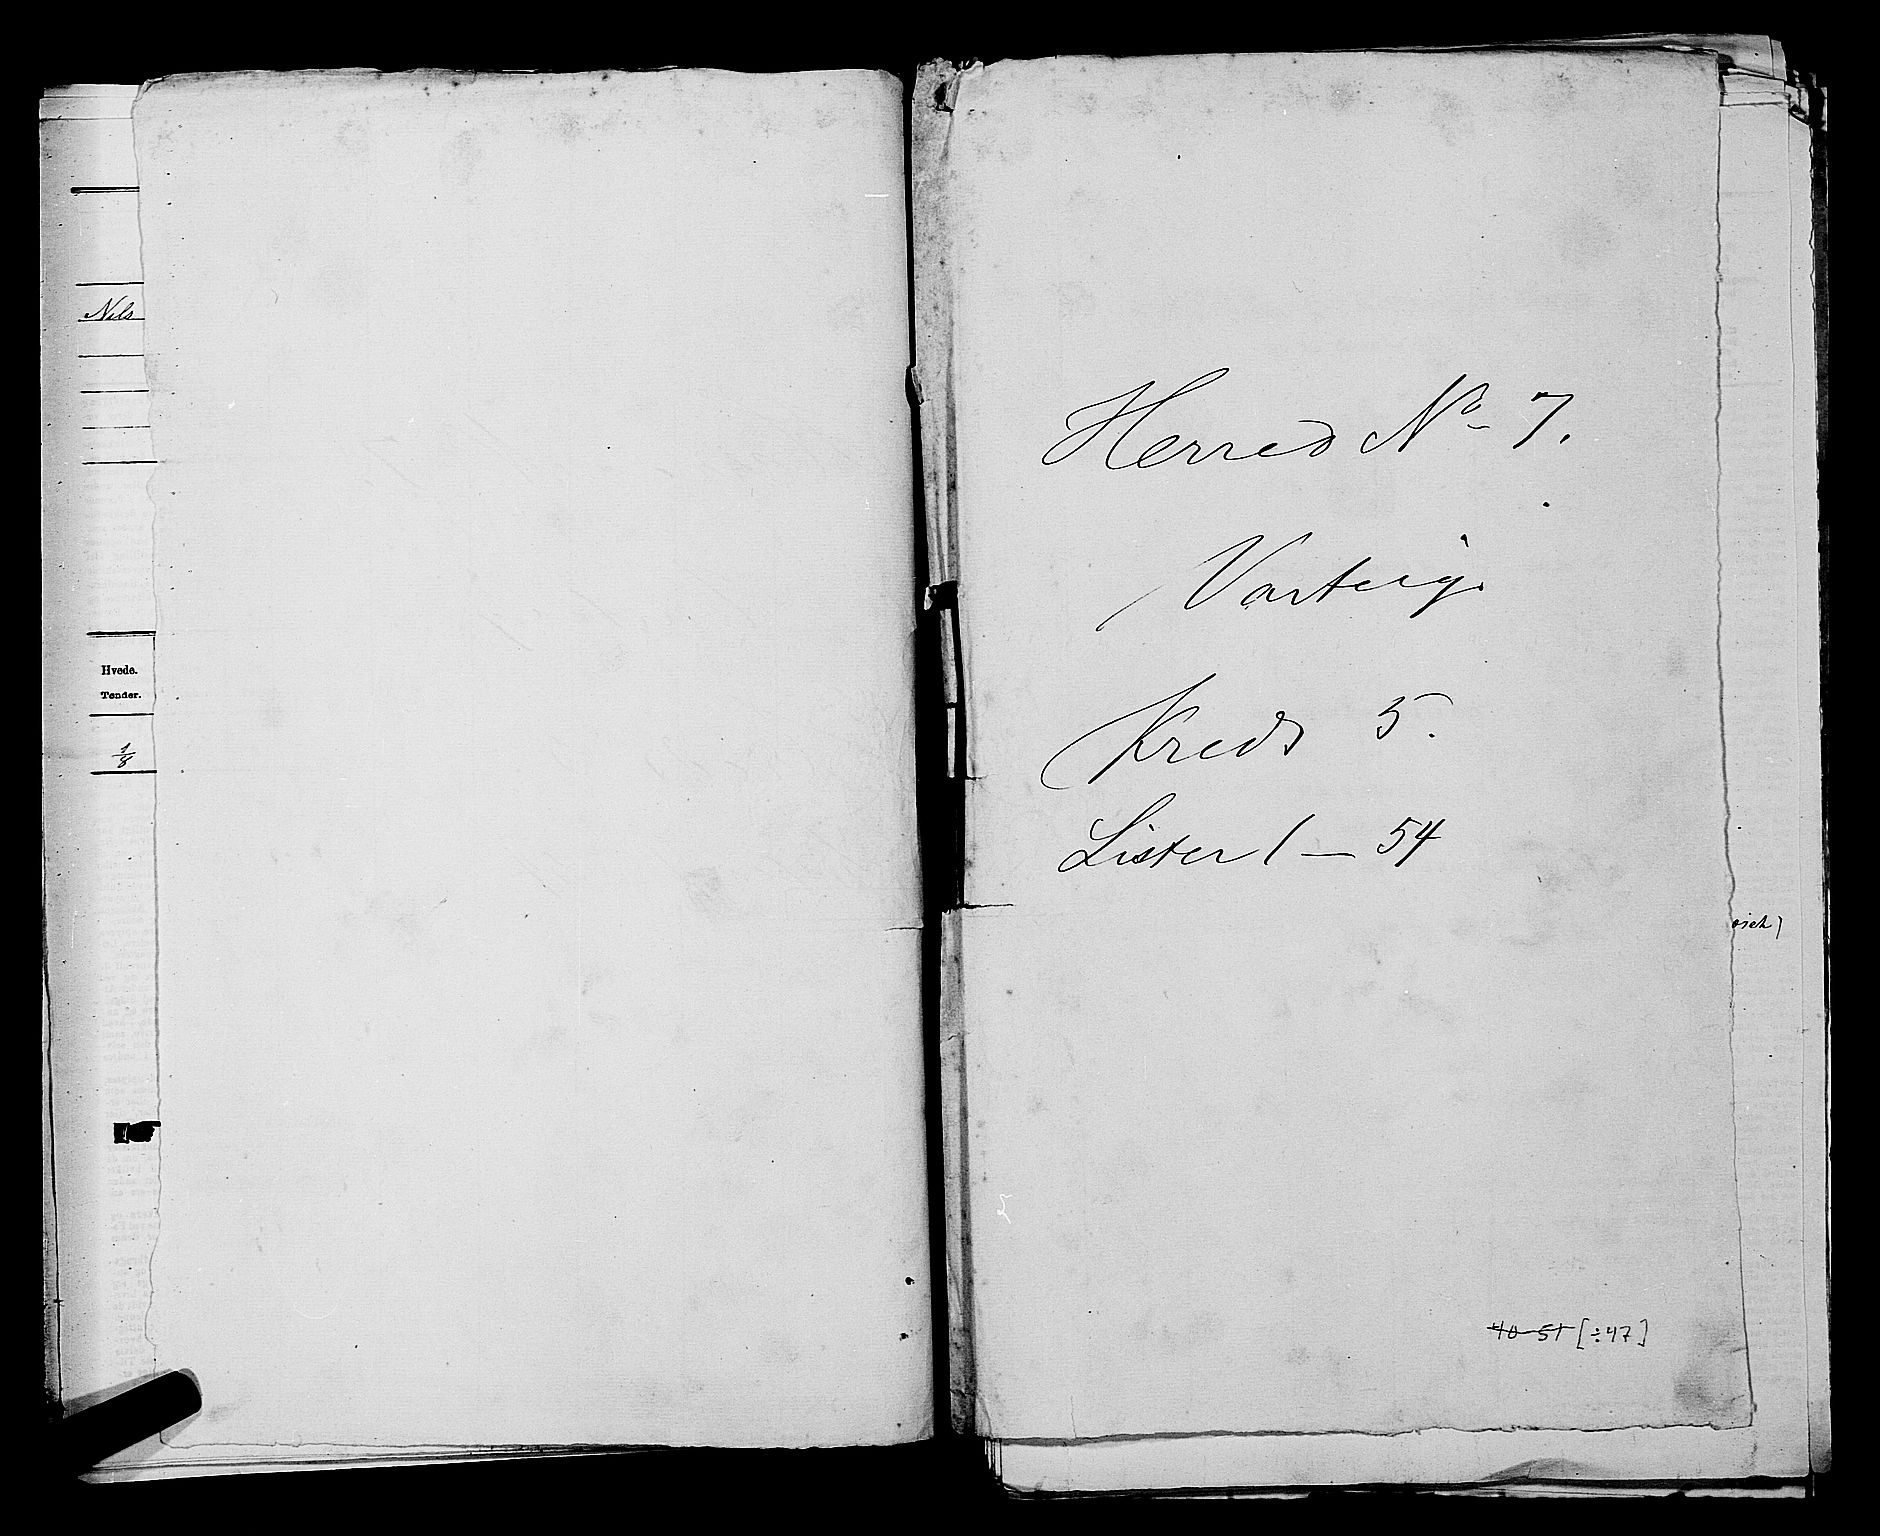 Nils
Hvede.
Tønder.
1/8
Herred No 7.
Varteig.
Kreds 5.
Lister 1 — 54
40-51 [÷47]